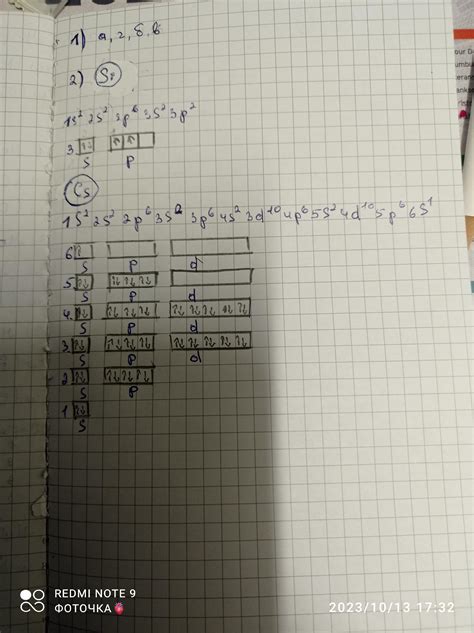 1) а, г, б, в
2) Si
1s² 2s² 2p⁶ 3s² 3p²
3. ↑↓ ↑ ↑
s p
Cs
1s² 2s² 2p⁶ 3s² 3p⁶ 4s² 3d¹⁰ 4p⁶ 5s² 4d¹⁰ 5p⁶ 6s¹
6. ↑
s p d
5. ↑↓ ↑↓ ↑↓ ↑↓
s p d
4. ↑↓ ↑↓ ↑↓ ↑↓ ↑↓ ↑↓ ↑↓ ↑↓ ↑↓
s p d
3. ↑↓ ↑↓ ↑↓ ↑↓ ↑↓ ↑↓ ↑↓ ↑↓ ↑↓
s p d
2 ↑↓ ↑↓ ↑↓ ↑↓
s p
1 ↑↓
s
REDMI NOTE 9
ФОТОЧКА
2023/10/13 17:32